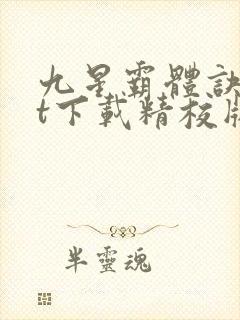 九星霸體訣
t下載精校版
半靈魂